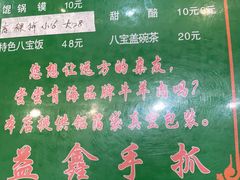 馄锅馍 10元 甜醅 10元
小6 大28
特色八宝饭 48元 八宝盖碗茶 20元
您想让远方的亲友,
尝尝青海品牌牛羊肉吗?
本店提供铝箔袋真空包装。
益鑫手抓